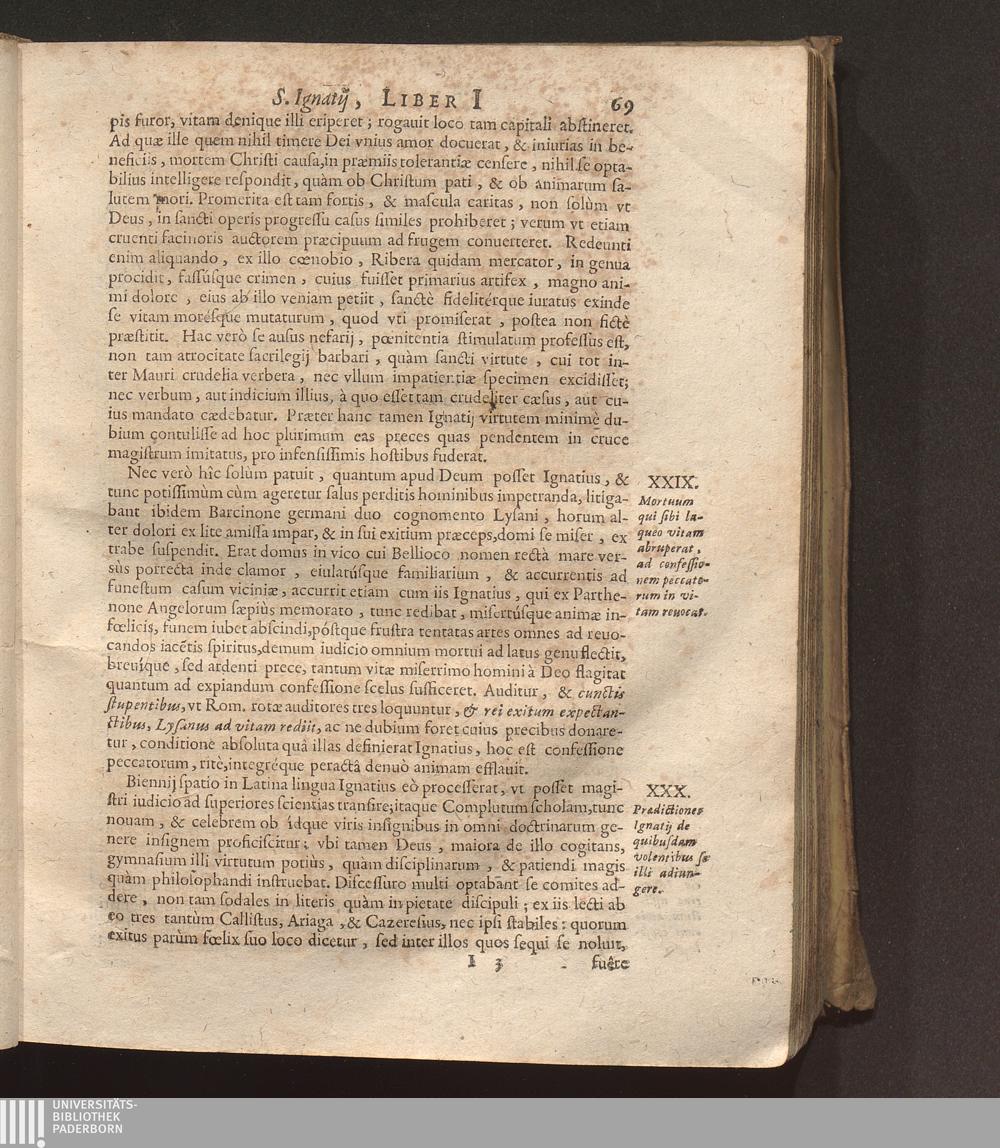 S. Ignatij, LIBER I 69
pis furor, vitam denique illi eriperet; rogauit loco tam capitali abſtineret.
Ad quæ ille quem nihil timere Dei vnius amor docuerat, & iniurias in be-
neficiis, mortem Chriſti cauſa, in præmiis tolerantiæ cenſere, nihil ſe opta-
bilius intelligere reſpondit, quàm ob Chriſtum pati, & ob animarum ſa-
lutem mori. Promerita eſt tam fortis, & maſcula caritas, non ſolùm vt
Deus, in ſancti operis progreſſu caſus ſimiles prohiberet; verum vt etiam
cruenti facinoris auctorem præcipuum ad frugem conuerteret. Redeunti
enim aliquando, ex illo cœnobio, Ribera quidam mercator, in genua
procidit, faſſúſque crimen, cuius fuiſſet primarius artifex, magno ani-
mi dolore, eius ab illo veniam petiit, ſanctè fidelitérque iuratus exinde
ſe vitam moréſque mutaturum, quod vti promiſerat, poſtea non fictè
præſtitit. Hac verò ſe auſus nefarij, pœnitentia ſtimulatum profeſſus eſt,
non tam atrocitate ſacrilegij barbari, quàm ſancti virtute, cui tot in-
ter Mauri crudelia verbera, nec vllum impatientiæ ſpecimen excidiſſet;
nec verbum, aut indicium illius, à quo eſſet tam crudeliter cæſus, aut cu-
ius mandato cædebatur. Præter hanc tamen Ignatij virtutem minimè du-
bium contuliſſe ad hoc plurimum eas preces quas pendentem in cruce
magiſtrum imitatus, pro infenſiſſimis hoſtibus fuderat.
Nec verò hîc ſolùm patuit, quantum apud Deum poſſet Ignatius, &
tunc potiſſimùm cùm ageretur ſalus perditis hominibus impetranda, litiga-
bant ibidem Barcinone germani duo cognomento Lyſani, horum al-
ter dolori ex lite amiſſa impar, & in ſui exitium præceps, domi ſe miſer, ex
trabe ſuſpendit. Erat domus in vico cui Bellioco nomen rectà mare ver-
sùs porrecta inde clamor, eiulatúſque familiarium, & accurrentis ad
funeſtum caſum viciniæ, accurrit etiam cum iis Ignatius, qui ex Parthe-
none Angelorum ſæpiùs memorato, tunc redibat, miſertúſque animæ in-
fœlicis, funem iubet abſcindi, póſtque fruſtra tentatas artes omnes ad reuo-
candos iacẽtis ſpiritus, demum iudicio omnium mortui ad latus genu flectit,
breuíque, ſed ardenti prece, tantum vitæ miſerrimo homini à Deo flagitat
quantum ad expiandum confeſſione ſcelus ſufficeret. Auditur, & cunctis
ſtupentibus, vt Rom. rotæ auditores tres loquuntur, & rei exitum expectan-
ctibus, Lyſanus ad vitam rediit, ac ne dubium foret cuius precibus donare-
tur, conditione abſoluta quâ illas definierat Ignatius, hoc eſt confeſſione
peccatorum, ritè, integréque peractâ denuò animam efflauit.
XXIX.
Mortuum
qui ſibi la-
queo vitam
abruperat,
ad confeſſio-
nem peccato-
rum in vi-
tam reuocat.
Biennij ſpatio in Latina lingua Ignatius eò proceſſerat, vt poſſet magi-
ſtri iudicio ad ſuperiores ſcientias tranſire; itaque Complutum ſcholam, tunc
nouam, & celebrem ob idque viris inſignibus in omni doctrinarum ge-
nere inſignem proficiſcitur; vbi tamen Deus, maiora de illo cogitans,
gymnaſium illi virtutum potiùs, quàm diſciplinarum, & patiendi magis
quàm philoſophandi inſtruebat. Diſceſſuro multi optabant ſe comites ad-
dere, non tam ſodales in literis quàm in pietate diſcipuli; ex iis lecti ab
eo tres tantùm Calliſtus, Ariaga, & Cazereſius, nec ipſi ſtabiles: quorum
exitus parùm fœlix ſuo loco dicetur, ſed inter illos quos ſequi ſe noluit,
XXX.
Prædictiones
Ignatij de
quibuſdam
volentibus ſe
illi adiun-
gere.
I 3 fuêre
UNIVERSITÄTS-
BIBLIOTHEK
PADERBORN